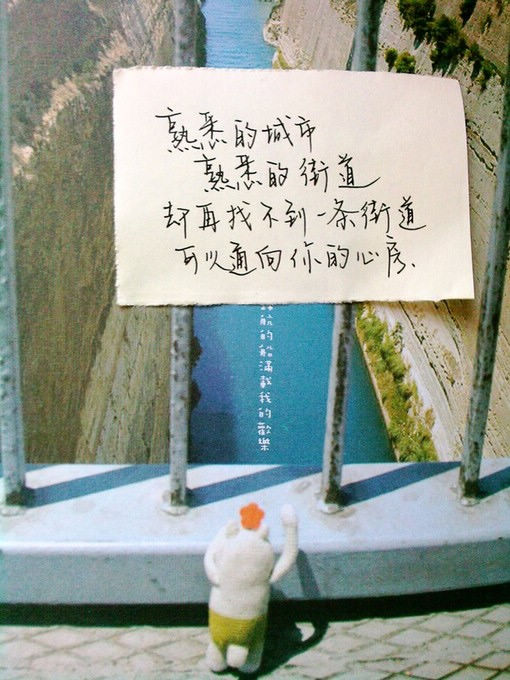 熟悉的城市
熟悉的街道
却再找不到一条街道
可以通向你的心房.
滿載我的歡樂